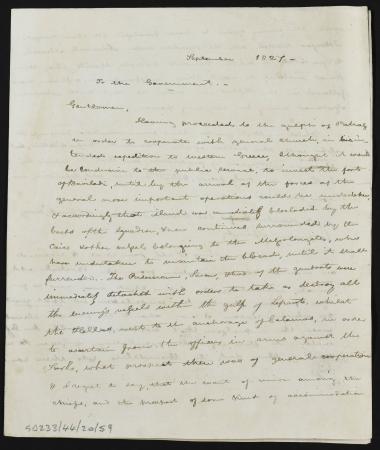 September 1827.-
To the Government.-
Gentlemen,
Having proceeded to the gulph of Patras
in order to cooperate with general Church, in his in-
tended expedition to western Greece, I thought it would
be conducive to the public service, to invest the fort
of Vasiladi, until by the arrival of the forces of the
general more important operations could be undertaken,
& accordingly that Island was immediately blockaded by the
boats of the Squadron, & was continued surrounded by the
& other vessels belonging to the Missolongites, who
have undertaken to maintain the blockade, until it shall
surrender. The Schooners, three of the gunboats were
immediately detached with orders to take or destroy all
the enemy's vessels within the gulf of Lepanto, whilst
the Hellas, went to the anchorage of Calamos, in order
to ascertain from the officers in arms against the
Turks, what prospect there was of general cooperation
& I regret to say, that the want of union among the
chiefs, and the prospect of some kind of accommodation
GD233/44/20/59